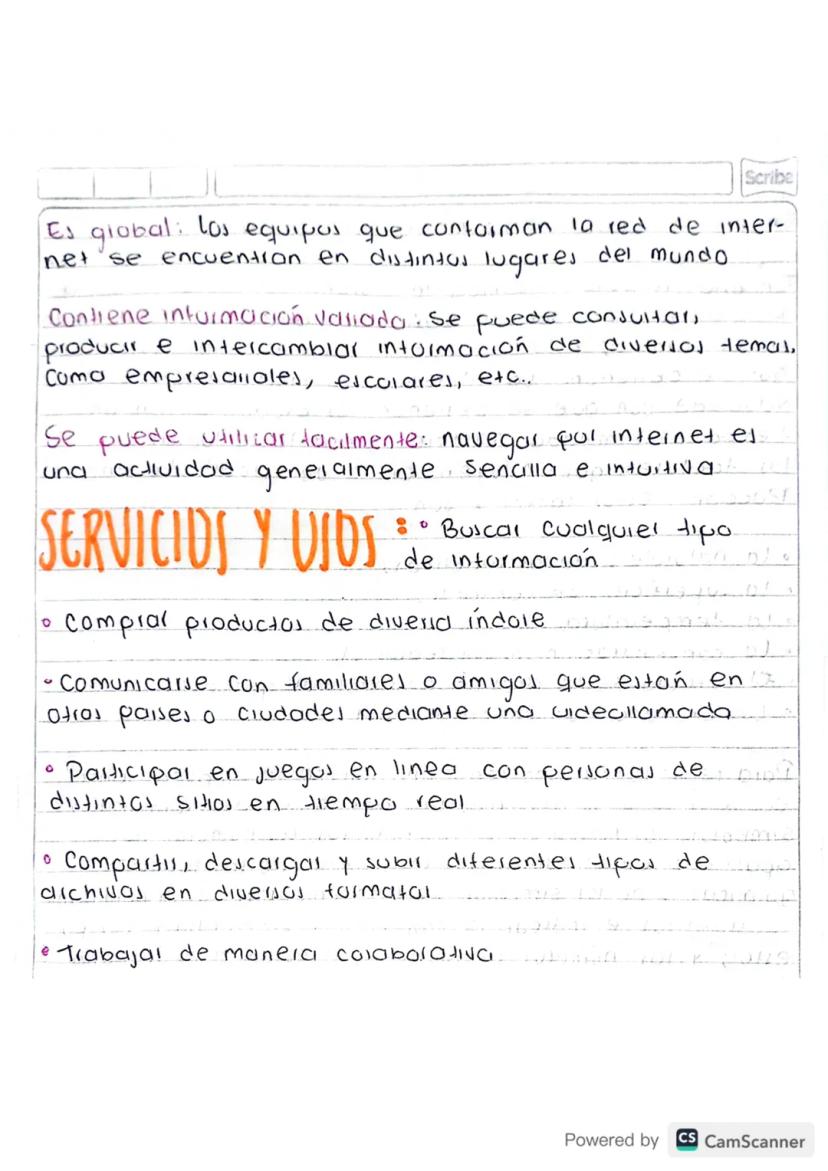 Scribe
Es global: Los equipos que conforman la red de inter-
net se encuentran en distintos lugares del mundo
Contiene información variada: Se puede consultar,
producir e intercambiar información de diversos temas,
como empresariales, escolares, etc..
Se puede utilizar facilmente: navegar por internet es
una actividad generalmente sencilla e intuitiva
SERVICIOS Y USOS : ° Buscar cualquier tipo
de información
° Comprar productos de diversa índole
• Comunicarse con familiares o amigos que estań en
otros paises o ciudades mediante una videollamada
° Participar en juegos en linea con personas de
distintos sitios en tiempo real
° Compartir, descargar y subir diferentes tipos de
archivos en diversos formatos
• Trabajar de manera colaborativa
Powered by CS CamScanner